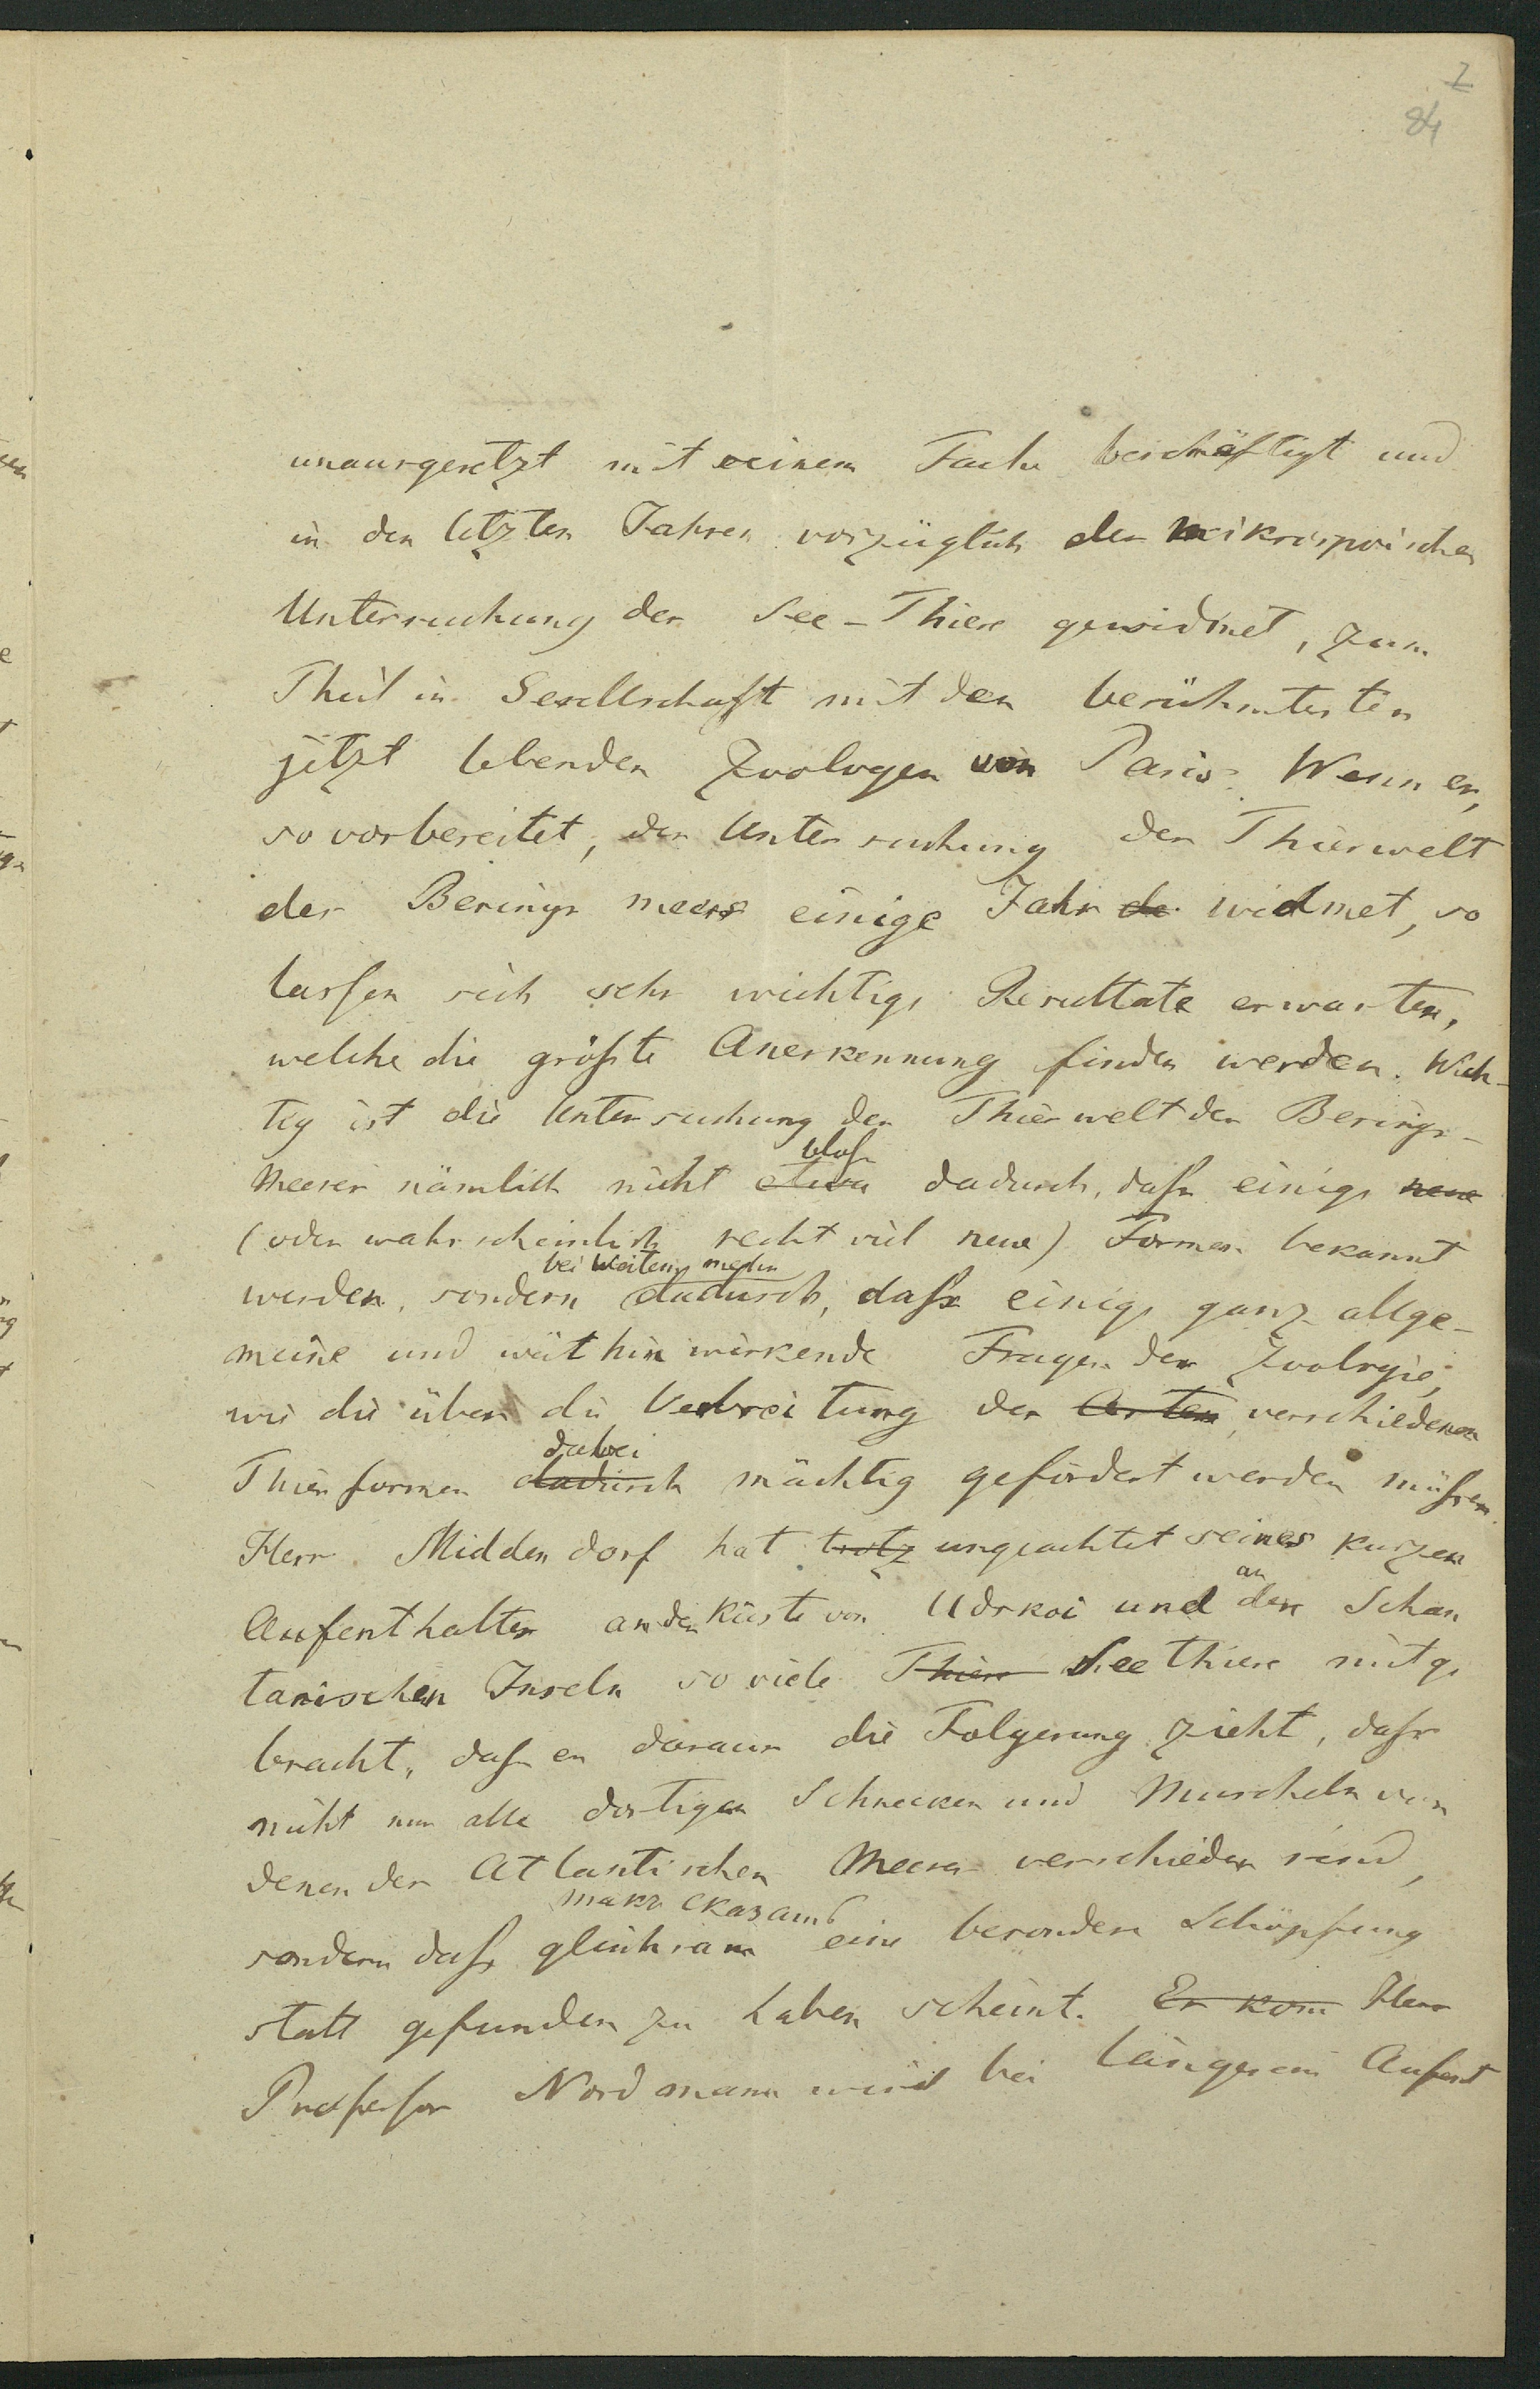 7
84
unausgesetzt mit seinem Fache beschäftigt und
in den letzten Jahren vorzüglich der mikroskopischen
Untersuchung der See-Thiere gewidmet, zum
Theil in Gesellschaft mit den berühmtesten
jetzt lebenden Zoologen von Paris. Wenn er,
so vorbereitet, der Untersuchung der Thierwelt
des Berings meers einige Jahr de widmet, so
lassen sich sehr wichtige Resultate erwarten,
welche die größte Anerkennung finden werden. Wich-
tig ist die Untersuchung der Thierwelt des Berings-
bloß
Meeres nämlich nicht etwa dadurch, daß einige neue
(oder wahrscheinlich recht viel neue) Formen bekannt
bei Weitem mehr
werden, sondern dadurch, daß einige ganz allge-
meine und weithin wirkende Fragen der Zoologie,
wie die über die Verbreitung der Arten, verschiedenen
dabei
Thierformen dadurch mächtig gefördert werden müssen.
Herr Middendorf hat trotz ungeachtet seines kurzen
an
Aufenthaltes an der Küste von Udskoi und den Schan
tarischen Inseln so viele Thiere Seethiere mitge
bracht, daß er daraus die Folgerung zieht, daß
nicht nur alle dortigen Schnecken und Muscheln von
denen des Atlantischen Meeres verschieden sind,
такъ сказать
sondern daß gleichsam eine besondere Schöpfung
statt gefunden zu haben scheint. Er kom Herr
Professor Nordmann wird bei längerem Aufent